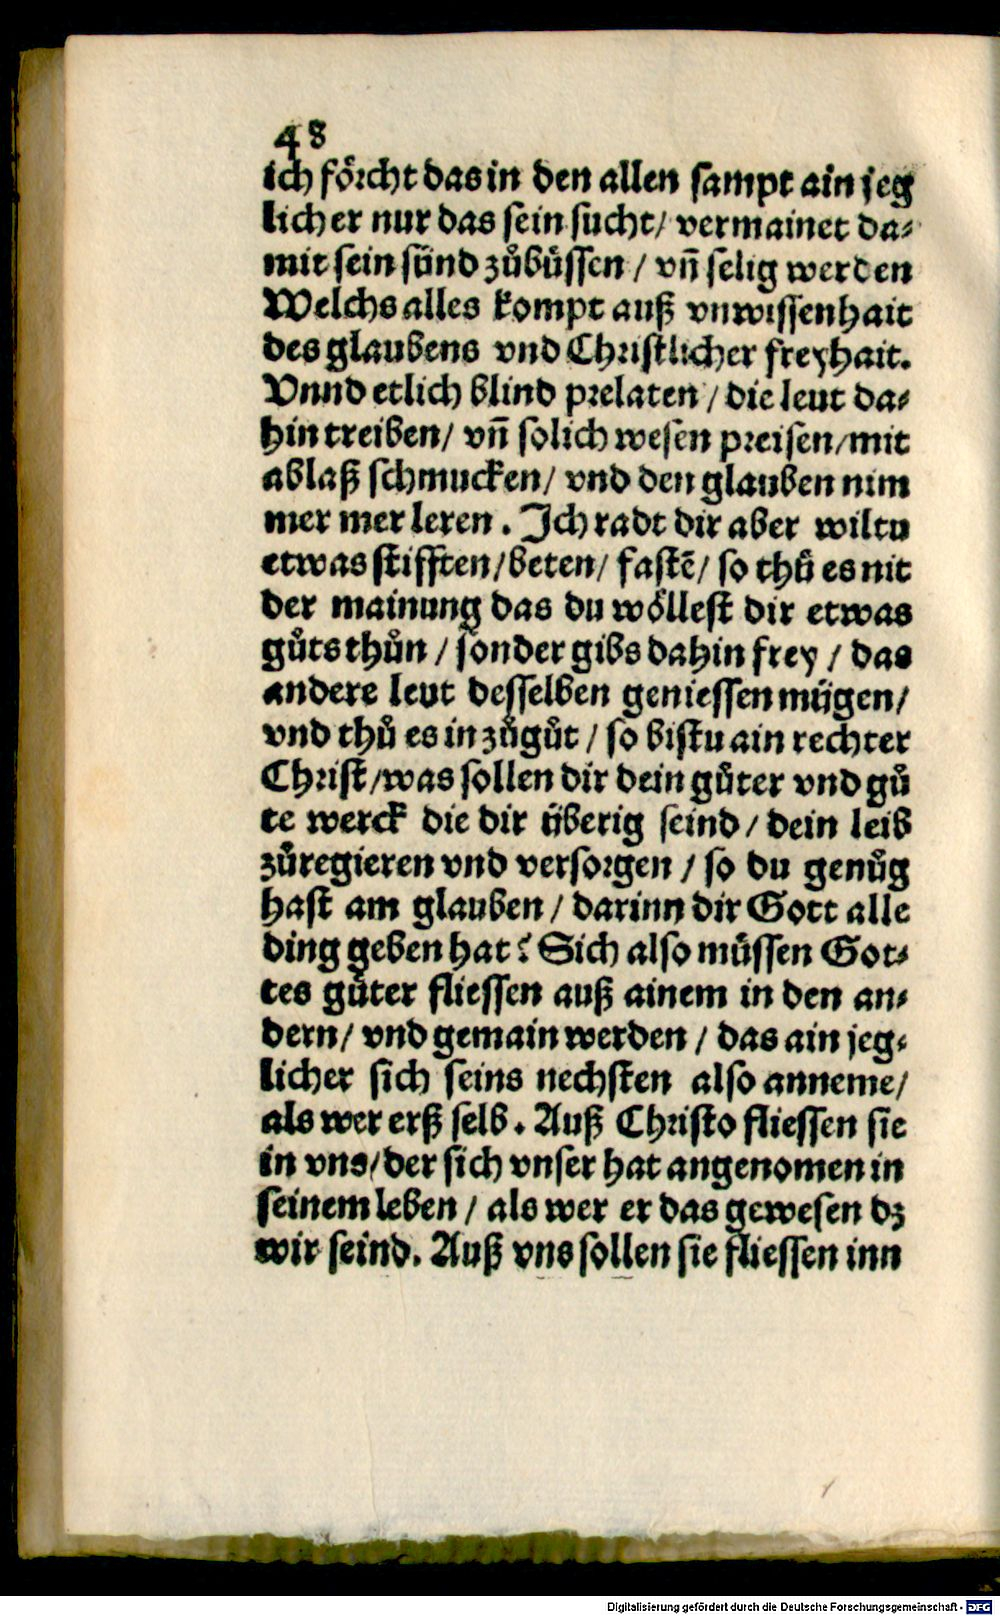 48
ich förcht das in den allen sampt ain jeg
licher nur das sein sucht/ vermainet da⸗
mit sein sünd zůbüssen / vñ selig werden
Welchs alles kompt auß vnwissenhait
des glaubens vnd Christlicher freyhait.
Vnnd etlich blind prelaten / die leut da⸗
hin treiben/ vñ solich wesen preisen/mit
ablaß schmucken/ vnd den glauben nim
mer mer leren . Ich radt dir aber wiltu
etwas stifften/beten/ fastē/ so thů es nit
der mainung das du wöllest dir etwas
gůts thůn / sonder gibs dahin frey / das
andere leut desselben geniessen mügen/
vnd thů es in zůgůt / so bistu ain rechter
Christ/was sollen dir dein gůter vnd gů
te werck die dir überig seind / dein leib
zůregieren vnd versorgen / so du genůg
hast am glauben / darinn dir Gott alle
ding geben hat? Sich also müssen Got⸗
tes gůter fliessen auß ainem in den an⸗
dern/ vnd gemain werden / das ain jeg⸗
licher sich seins nechsten also anneme/
als wer erß selb . Auß Christo fliessen sie
in vns/der sich vnser hat angenomen in
seinem leben / als wer er das gewesen dz
wir seind. Auß vns sollen sie fliessen inn
Digitalisierung gefördert durch die Deutsche Forschungsgemeinschaft - DFG